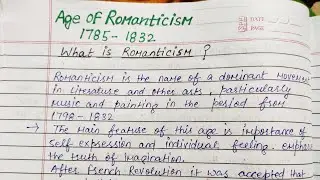 Age of Romanticism
1785 - 1832
What is Romanticism ?
Romanticism is the name of a dominant movemen
in literature and other arts, particularly
music and painting in the period from
1798 - 1832
→ The main feature of this age is importance of
self expression and individual feeling. emphas
the truth of imagication.
After French Revolution it was accepted that
DATE
PAGE